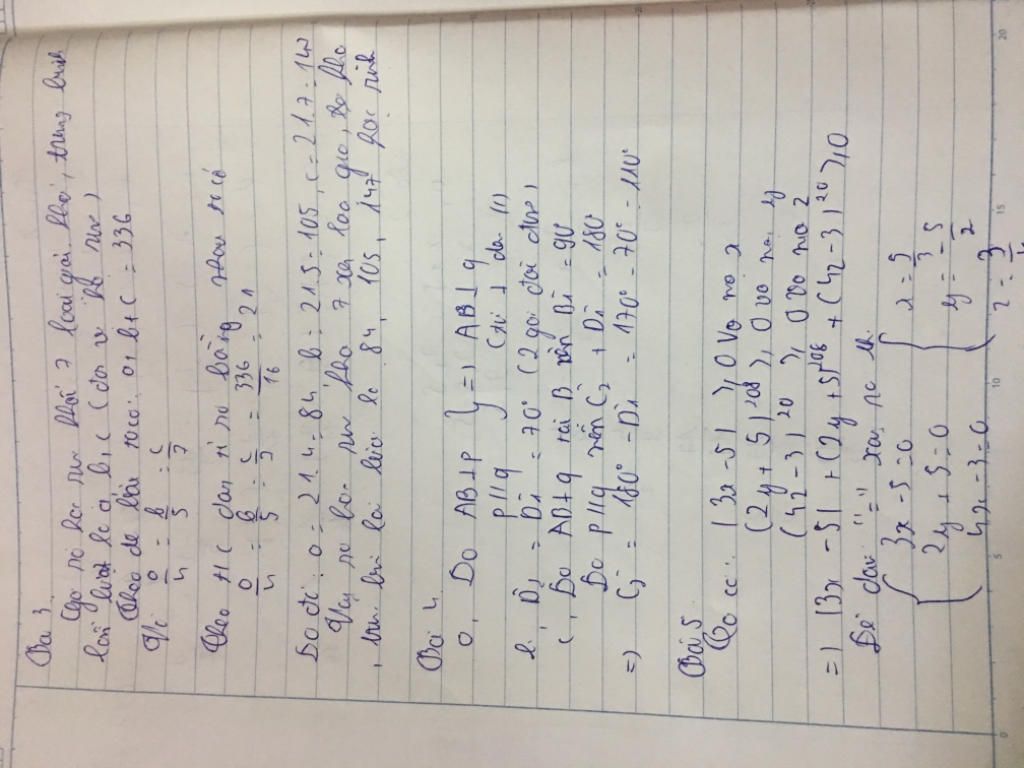 Bài 3
Gọi số học sinh khối 7 loại giỏi, khá, trung bình
lần lượt là a, b, c (
Theo đề bài ta có: a + b + c = 336
Vì a/4 = b/5 = c/7
Theo t/c dãy tỉ số bằng nhau ta có
a/4 = b/5 = c/7 = 336/16 = 21
Do đó: a = 21.4 = 84 b = 21.5 = 105, c = 21.7 = 147
Vậy số học sinh khối 7 xếp loại giỏi,
, trung bình lần lượt là 84, 105, 147 học sinh
Bài 4
a, Do AB ⊥ P
P // q } => AB ⊥ q
b, = D1 = 70° (2 góc đối đỉnh)
c, Do AB ⊥ q tại B nên B1 = 90°
Do P // q nên C2 + D1 = 180
=> = 180° - D1 = 170° - 70° = 110°
Bài 5
Ta có: |3x - 5| ≥ 0
(2y + 5)^208 ≥ 0
(4z - 3)^20 ≥ 0
=> |3x - 5| + (2y + 5)^208 + (4z - 3)^20 ≥ 0
Để dấu "=" xảy ra
{ 3x - 5 = 0 { x = 5/3
2y + 5 = 0 y = -5/2
4z - 3 = 0 z = 3